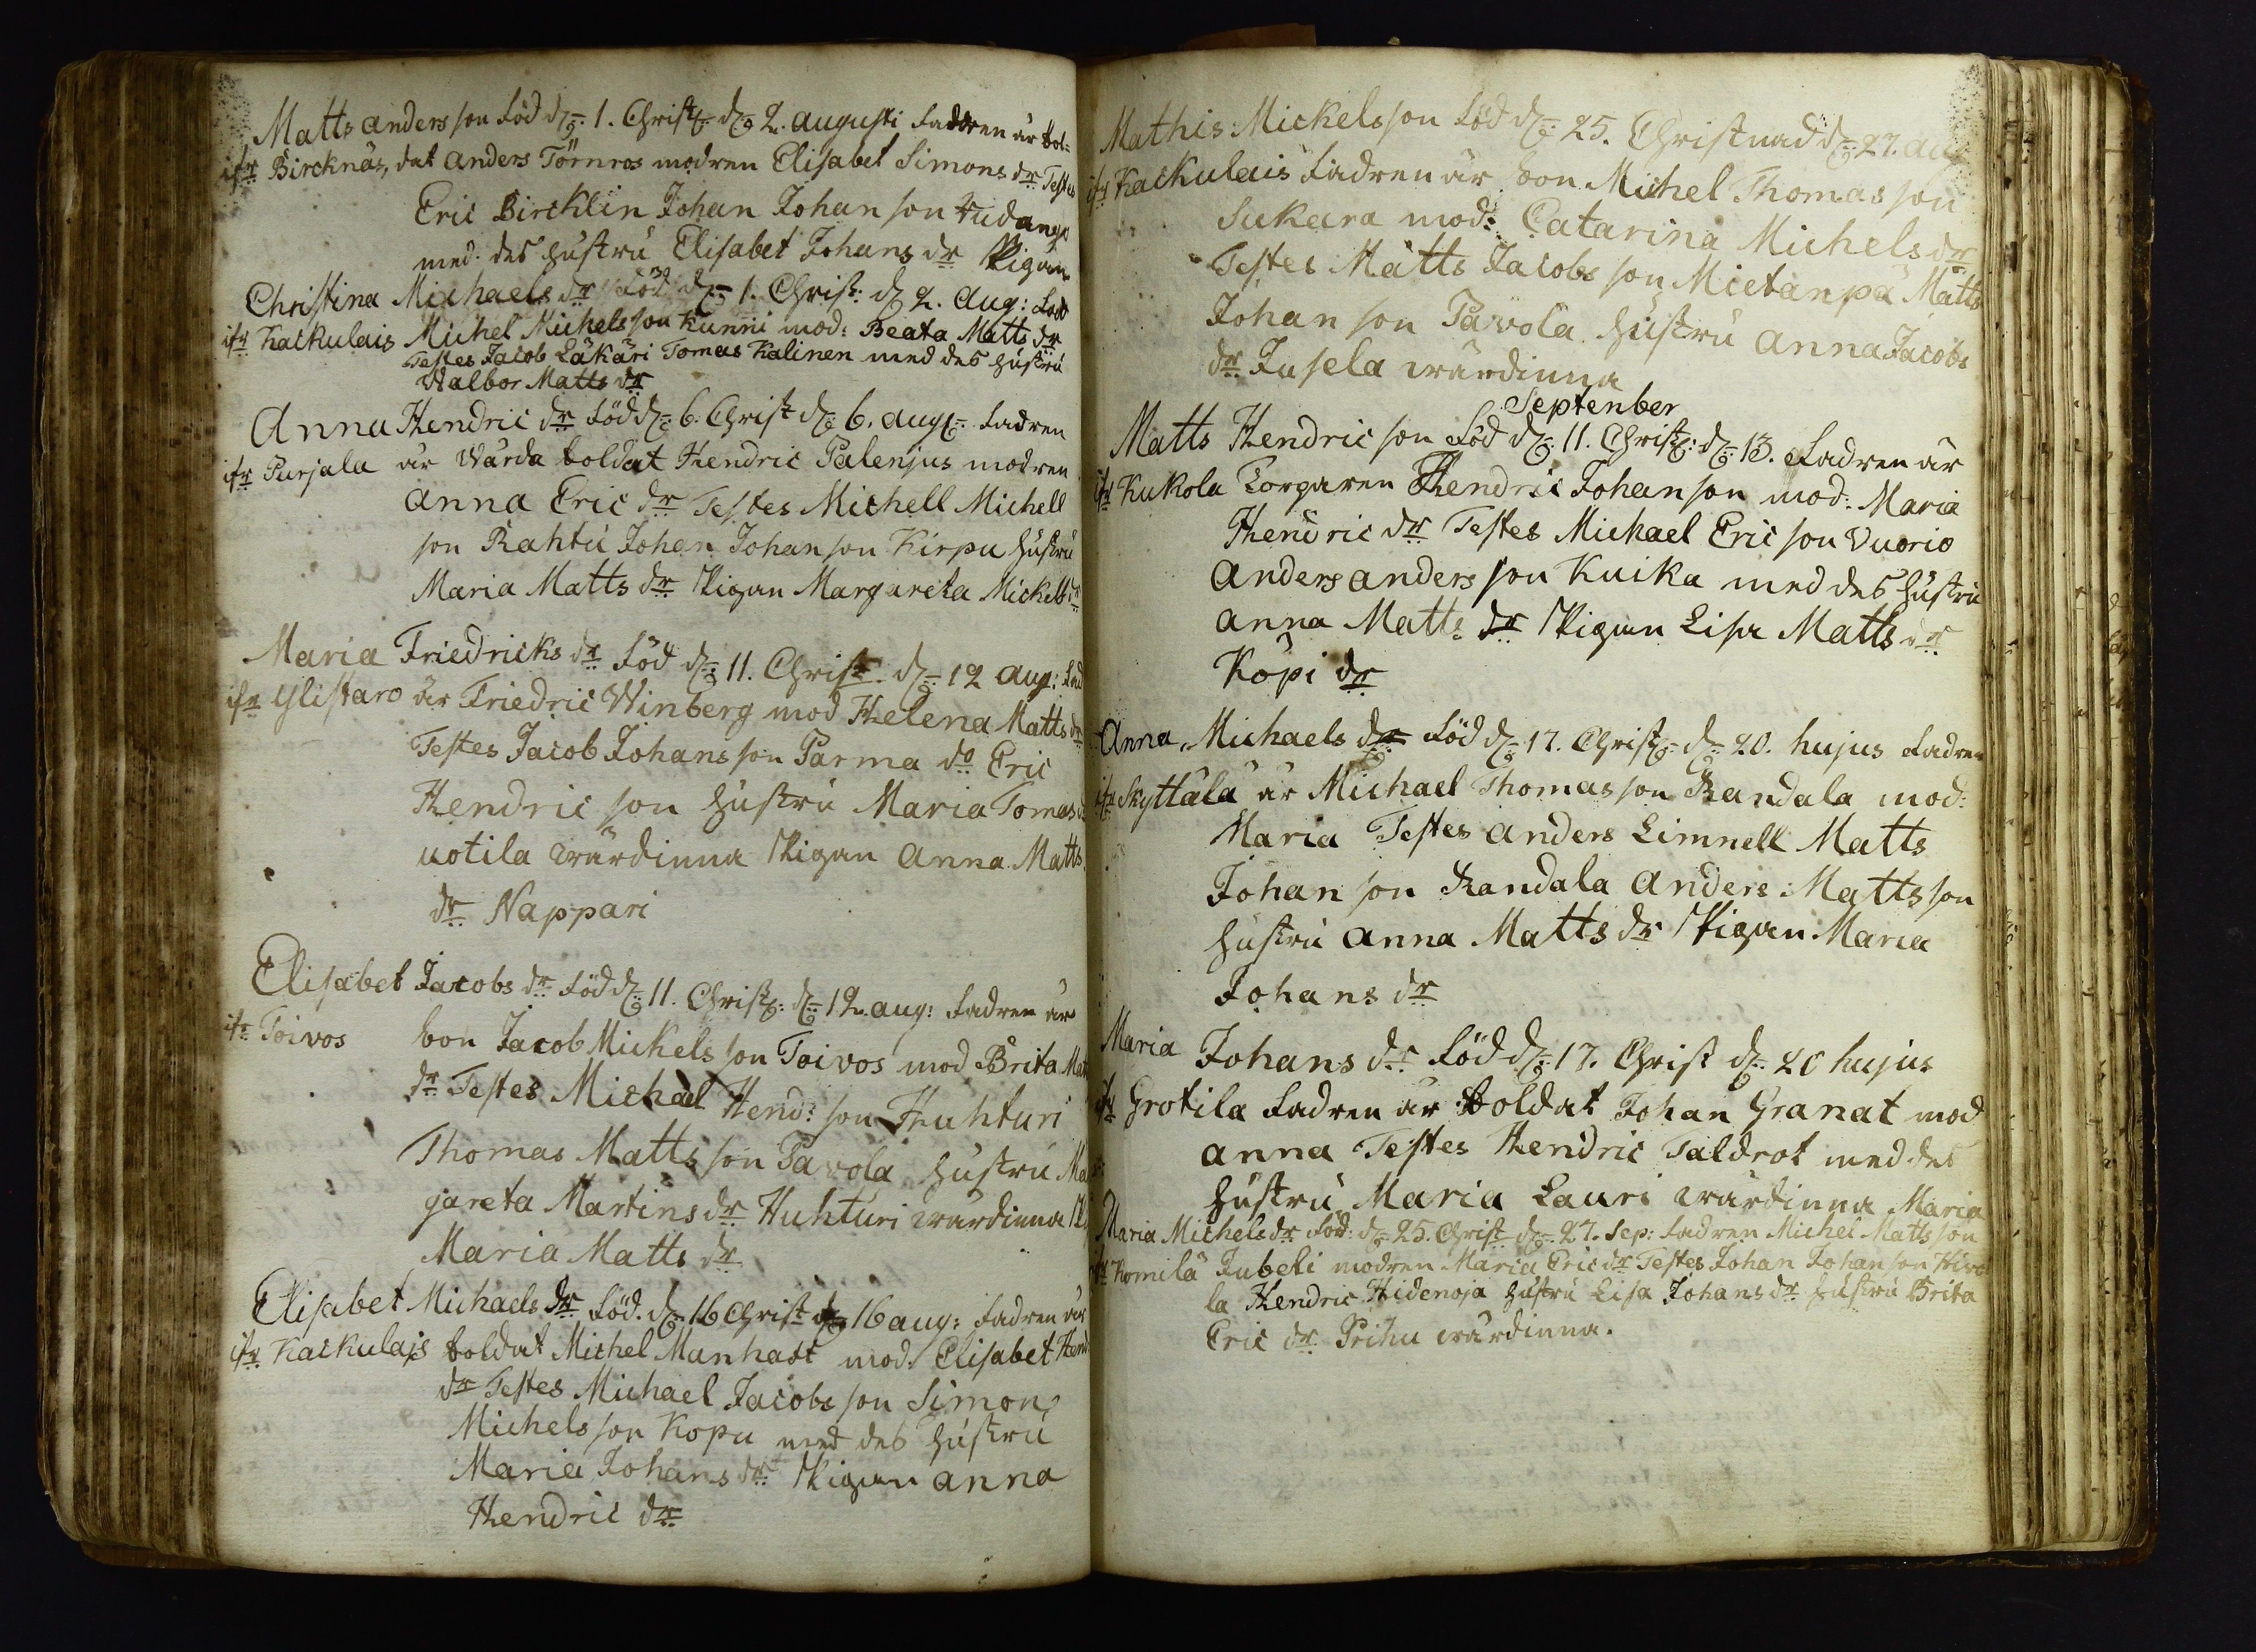 Matts andersson Född d. 1. Christ: d. 2. augusti Fadren är Sol=
ifr Bircknäs, dat anders Törnros modren Elisabet Simons dr Testes
Eric Bircklin Johan Johansson
med des hustru Elisabet Johans dr Pigan
Christina Michaels dr Född d. 1. Christ: d. 2. Aug: Fad
ifr Kackulais Michel Michelsson Kunni mod: Beata Matts dr
Testes Jacob Läkäri Tomas Kalinen med des hustru
Walbor Matts dr
Anna Hendric dr Född d. 6. Christ d. 6. aug: Fadren
ifr Purjala är Wärda Soldat Hendric Palenjus modren
anna Eric dr Testes Michell Michell
son Rahtu Johan Johansson Kirpu hustru
Maria Matts dr Pigan Margareta Michells dr
Maria Friedricks dr Född d. 11. Christ. d. 12 aug: Fad
ifr Ylistaro är Friedric Winberg mod Helena Matts dr
Testes Jacob Johansson Parma do Eric
Hendric son hustru Maria Tomas dr
uotila wärdinna Pigan Anna Matts
dr Nappari
Elisabet Jacobs dr Född d. 11. Christ: d. 12. aug: Fadren är
ifr Toivos bon Jacob Mickelsson Toivos mod Brita Matts
dr Testes Michael Hend: son Huhturi
Thomas Mattsson Pavola hustru Mar
gareta Martins dr Huhturi wärdinna
Maria Matts dr
Elisabet Michaels dr Föd. d. 16 Christ d. 16 aug: Fadren är
ifr Kackulais Soldat Michel Manhaft mod. Elisabet Hend
dr Testes Michael Jacobs son Simon
Michelsson Kopu med des hustru
Maria Johans dr Pigan anna
Hendric dr
Mathis Mickelsson Född d. 25. Christnad d. 27. aug
ifr Kackulais Fadren är bon Michel Thomasson
Sukara mod: Catarina Michels dr
Testes Matts Jacobs son Mietanpä Matts
Johan son Pavola hustru anna Jacobs
dr Jusela wärdinna
September
Matts Hendricson Född d. 11. Christ: d. 13. Fadren är
ifr Kukola Torparen Hendric Johanson mod: Maria
Hendric dr Testes Michael Ericson Vuorio
anders anders son Kuika med des hustru
anna Matts dr Pigan Lisa Matts dr
Köpi dr
Anna, Michaels dr Född d. 17. Christ: d. 20. hujus Fadren
ifr Skyttälä är Michael Thomasson Randala mod:
Maria Testes anders Limnell Matts
Johan son Randala anders Mattsson
hustru anna Matts dr Pigan Maria
Johans dr
Maria Johans dr Född d. 17. Christ d. 20 hujus
ifr Grotila Fadren är Soldat Johan Granat mod
anna Testes Hendric Taldrot med des
hustru Maria Lauri wärdinna Maria
Maria Michels dr Föd: d. 25. Christ d. 27. Sep: Fadren Michel Mattsson
ifr Komilä Jubeli modren Maria Eric dr Testes Johan Johanson Hiro
la Hendric Hidenoja hustru Lisa Johans dr hustru Brita
Eric dr Prihu wärdinna.